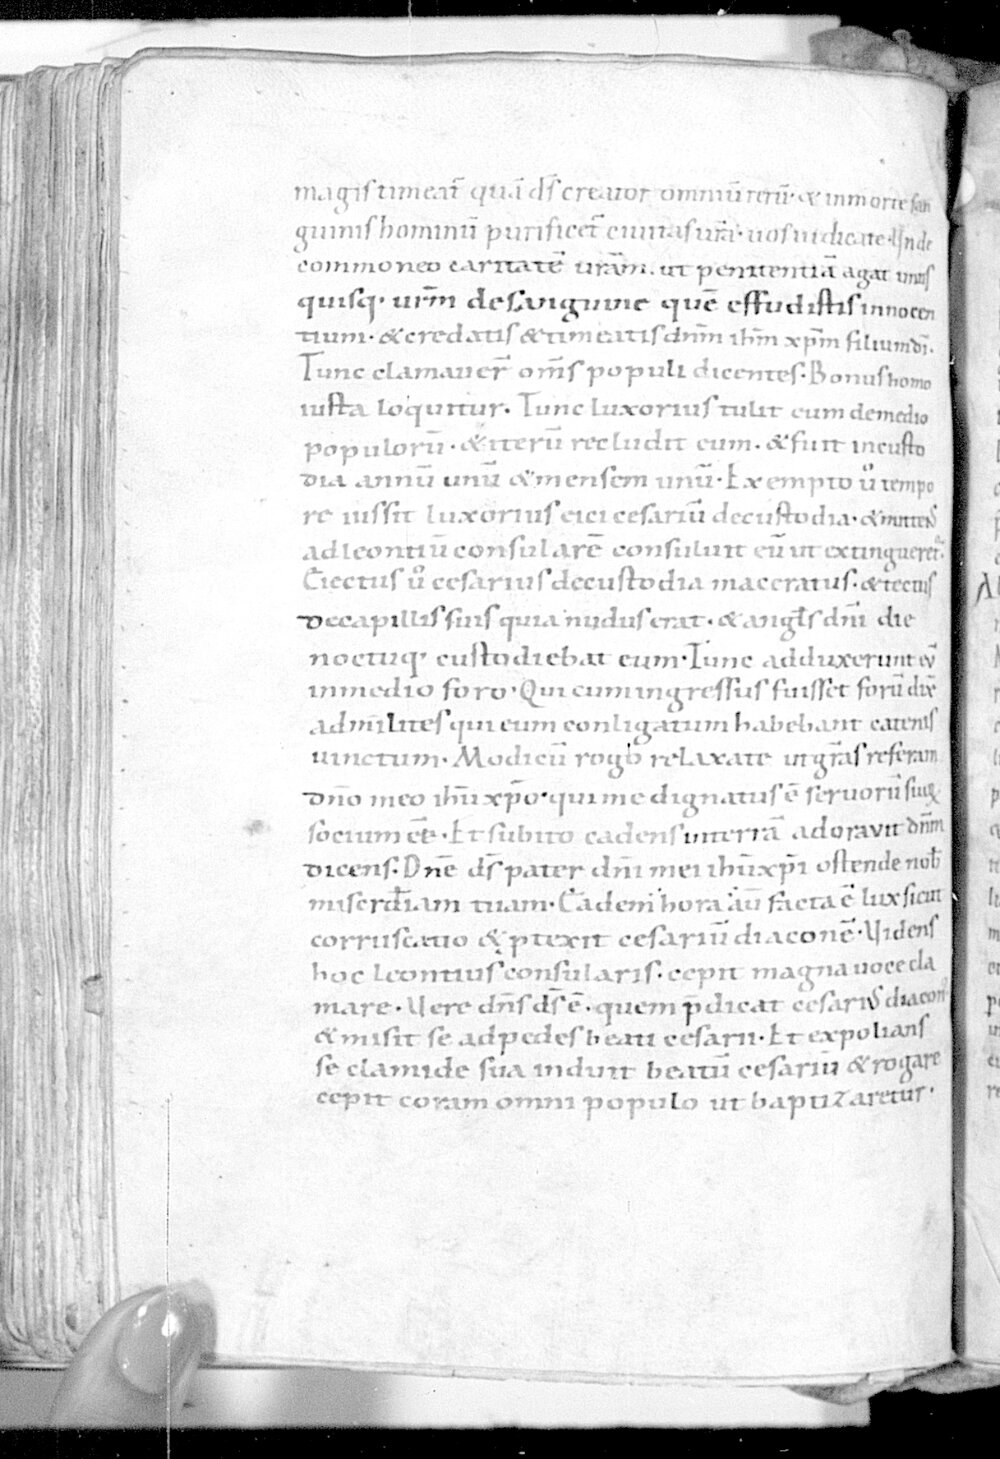 magis timeat̄ quā d̄s creator omniū rerū· & in morte san
guinis hominū purificet̄ ciuitas ur̄a· uos iudicate· Unde
commoneo caritatē ur̄am. ut penitentiā agat unus
quisq· ur̄m de sanguine quē effudistis innocen
tium· & credatis & timeatis dn̄m ih̄m xp̄m filium dī·
Tunc clamauer̄ om̄s populi dicentes· Bonus homo
iusta loquitur· Tunc luxorius tulit eum de medio
populorū· & iterū recludit eum· & fuit in custo
dia annū unū & mensem unū· Exempto ů tempo
re iussit luxorius eici cesariū de custodia· & mittens
ad leontiū consularē consuluit eū ut extingueret·
Eiectus ů cesarius de custodia maceratus· & tectus
de capillis suis quia nudus erat· & angl̄s dn̄i die
noctuq· custodiebat eum· Tunc adduxerunt eū
in medio foro· Qui cum ingressus fuisset forū dix̄
ad milites qui eum conligatum habebant catenis
uinctum· Modicū rogo relaxate ut gr̄as referam
dn̄o meo ih̄u xp̄o· qui me dignatus ē seruorū suoꝝ
socium eē· Et subito cadens in terrā adorauit dn̄m
dicens· Dn̄e d̄s pater dn̄i mei ih̄u xp̄i ostende nob̄
miscrd̄iam tuam· Eadem hora aū facta ē lux sicut
corruscatio & ꝓtexit cesariū diaconē· Uidens
hoc leontius consularis· cepit magna uoce cla
mare· Uere dn̄s d̄s ē· quem p̄dicat cesarius diacon̄
& misit se ad pedes beati cesarii· Et expolians
se clamide sua induit beatū cesariū & rogare
cepit coram omni populo ut baptizaretur·